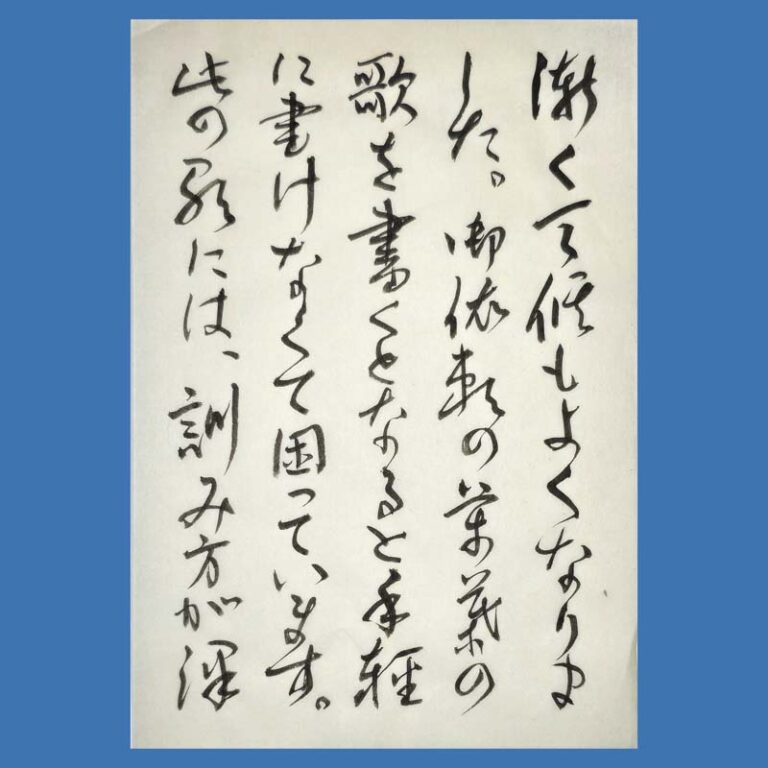 漸く天候もよくなりま
した。御依頼の萬葉の
歌を書くとなると手輕
に書けなくて困っています。
此の歌には、訓み方が澤